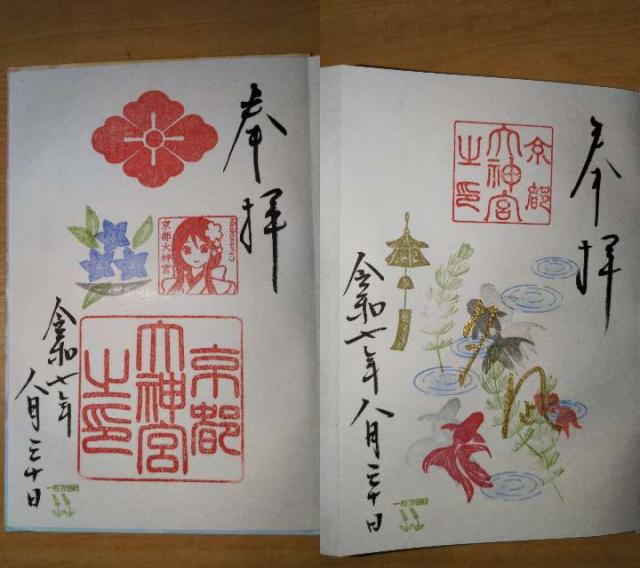 奉拝
京都大神宮
京都
大神宮
之印
令和七年
八月三十日
一粒万倍日
奉拝
京都
大神宮
之印
令和七年八月三十日
一粒万倍日